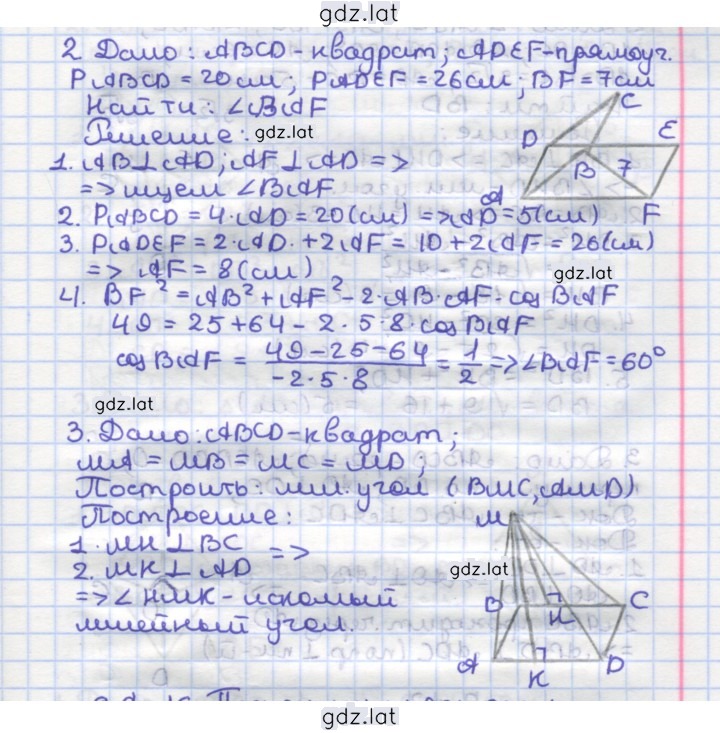 gdz.lat
2 Дано: ABCD-квадрат; ADEF-прямоуг.
PABCD = 20 см; PADEF = 26 см; BF = 7 см
Найти: ∠BAF
Решение: gdz.lat
1. AB⊥AD; AF⊥AD =>
=> ищем ∠BAF
2. PABCD = 4·AD = 20(см) => AD = 5(см)
3. PADEF = 2·AD·+2AF = 10+2AF = 26(см)
=> AF = 8(см)
gdz.lat
4. BF² = AB²+AF²-2·AB·AF·cos BAF
49 = 25+64-2·5·8·cos BAF
cos BAF = (49-25-64)/(-2·5·8) = 1/2 => ∠BAF = 60°
C
D
E
B
7
A
F
gdz.lat
3. Дано: ABCD-квадрат;
MA = MB = MC = MD;
Построить: лин. угол (BMC; AMD)
Построение:
1. MH⊥BC =>
2. MK⊥AD
=> ∠HMK-искомый
линейный угол.
M
gdz.lat
B
H
C
A
K
D
gdz.lat